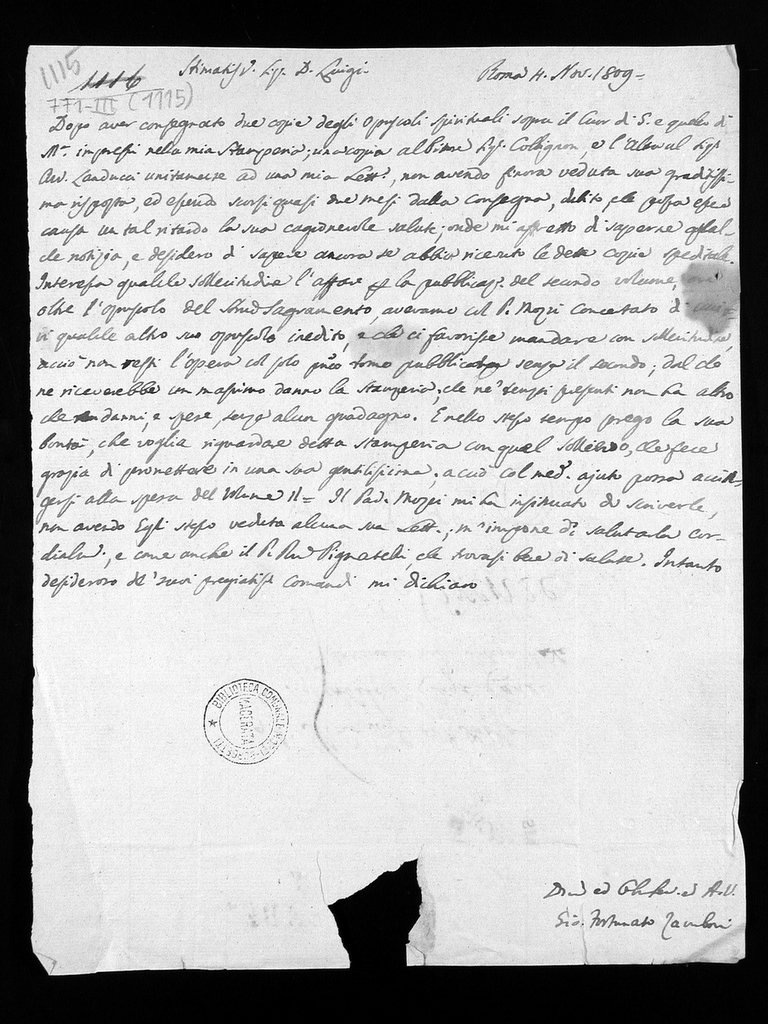 1115
1116
771-III (1115)
Stimatiss. Sig. D. Luigi
Roma 4. Nov. 1809=
Dopo aver consegnato due copie degli Opuscoli Spirituali sopra il Cuor di G. e quello di
Mª. impressi nella mia Stamperia; una copia al Sig. e l'altra al Sig.
Avv. Landucci unitamente ad una mia Lettª., non avendo finora veduta sua gradissi-
ma risposta, ed essendo scorsi quasi due mesi dalla consegna, dubito che possa esser
causa un tal ritardo la sua cagionevole salute; onde mi affretto di saperne qual-
che notizia, e desidero di sapere ancora se abbia ricevuto le dette copie speditele.
Interessa qualche sollecitudine l'affare la pubblicaz. del secondo volume,
oltre l'opuscolo del Smo Sagramento, avevamo col P. Mozzi concertato di
qualche altro suo opuscolo inedito, e che ci favorisse mandare con sollecitudine
acciò non resti l'opera col solo pmo tomo pubblicato senza il secondo; dal che
ne riceverebbe un massimo danno la Stamperia, che ne' tempi presenti non ha altro
che danni, e spese, senza alcun guadagno. E nello stesso tempo prego la sua
bontà, che voglia riguardare detta stamperia con quel sollievo, che fece
grazia di promettere in una sua gentilissima; acciò col medº. ajuto possa accin-
gersi alla spesa del Volume II= Il Pad. Mozzi mi ha insinuato di scriverle,
non avendo Egli stesso veduta alcuna sua Lett.; m'impone di salutarla cor-
dialmᵉ., e come anche il P. Pignatelli, che trovasi bene di salute. Intanto
desideroso de' suoi pregiatissi comandi mi dichiaro
BIBLIOTECA COMUNALE MOZZI-BORGETTI
MACERATA
ed
Gio. Fortunato Zamboni